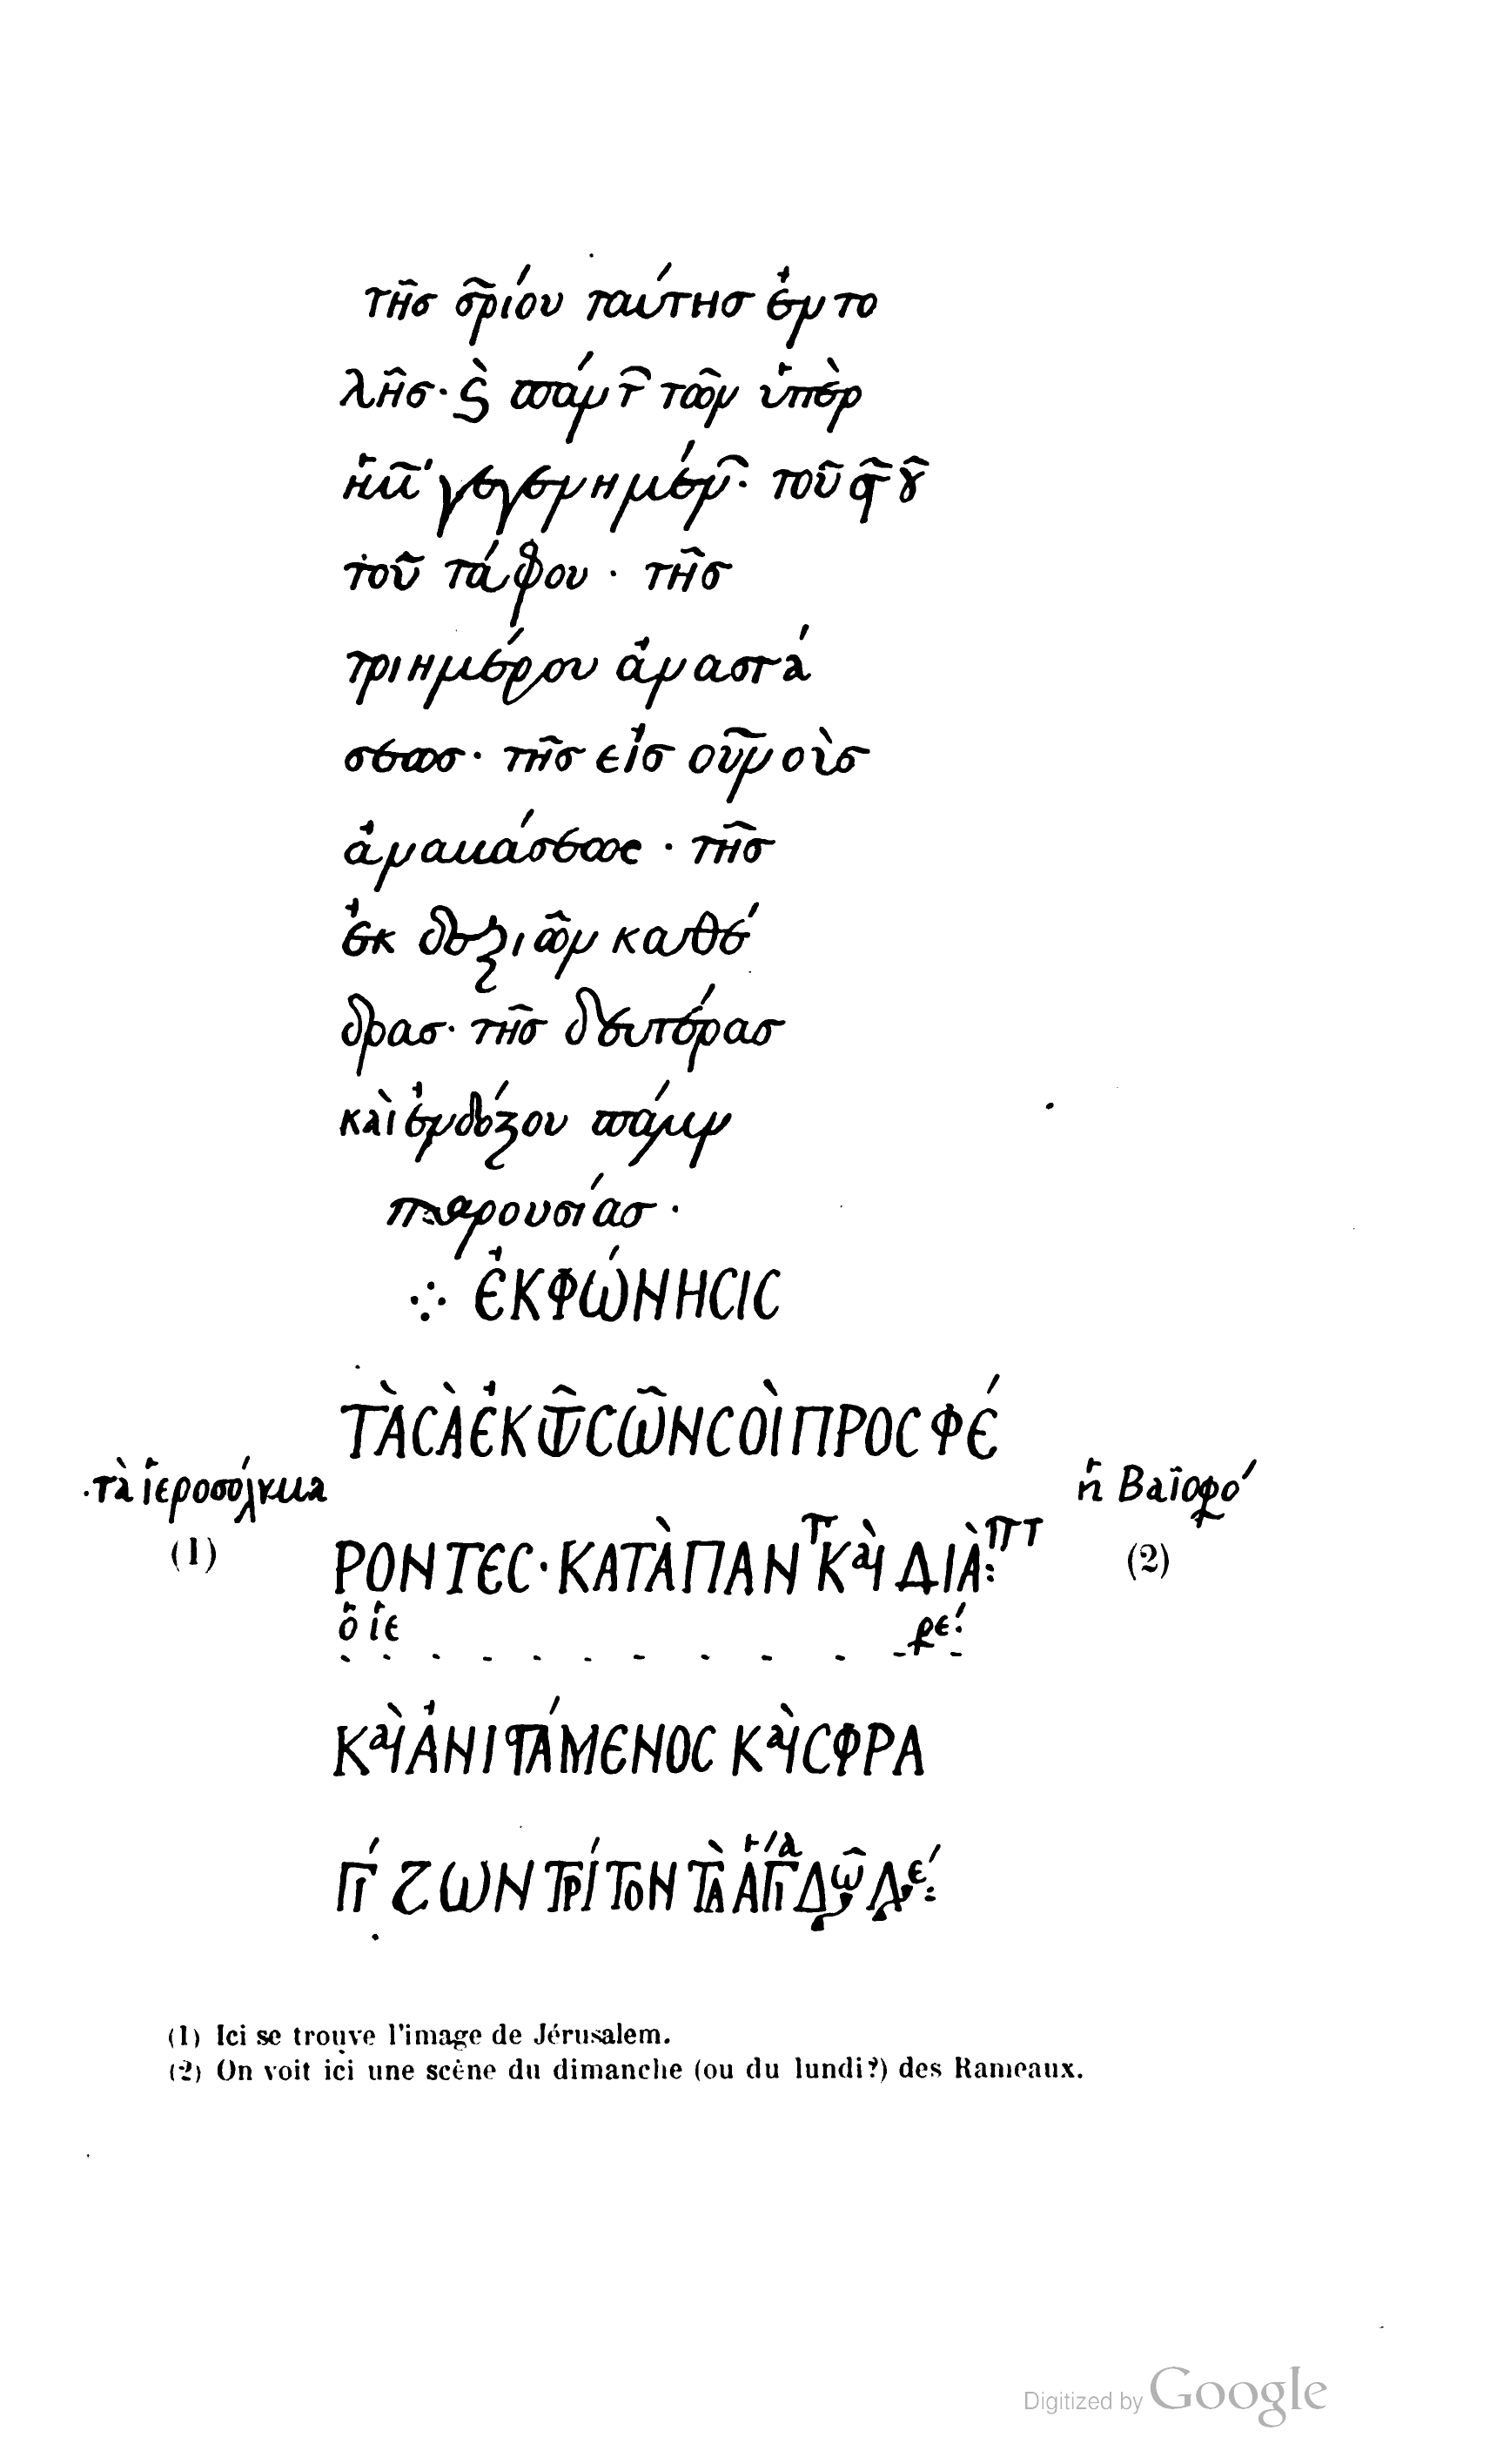 τῆσ σ̅ρίου ταύτησ ἐντο
λῆσ· ϗ̀ πάντ̅ τῶν ὑπὲρ
ἡμ̅ γεγενημέν̅· τοῦ σ̅ρ̅ου
τοῦ τάφου · τῆσ
τριημέρου ἀναστά
σεωσ· τῆσ εἰσ οὐ̅νοὺσ
ἀναβάσεως · τῆσ
ἐκ δεξιῶν καθέ
δρασ· τῆσ δευτέρασ
καὶ ἐνδόξου πάλιν
παρουσίασ ·
⁘ ἘΚΦΏΝΗCΙC
ΤᾺ CᾺ ἘΚ Τ͂Ω͂Ν CῶΝ CΟῚ ΠΡΟCΦΈ
·τὰ ἱεροσόλυμα
ἡ Βαϊοφό
(1)
ΡΟΝΤΕC· ΚΑΤᾺ ΠΑΝΤ Καὶ ΔΙᾺ ΠΤ:
(2)
ὁ ἱε
ρε´:
ΚαὶἈΝΙCΤΆΜΕΝΟC ΚαὶCΦΡΑ
ΓΊΖΩΝ ΤΡΊΤΟΝ ΤᾺ ἍΓΙα ΔῶΡ
(1) Ici se trouve l'image de Jérusalem.
(2) On voit ici une scène du dimanche (ou du lundi?) des Rameaux.
Digitized by Google